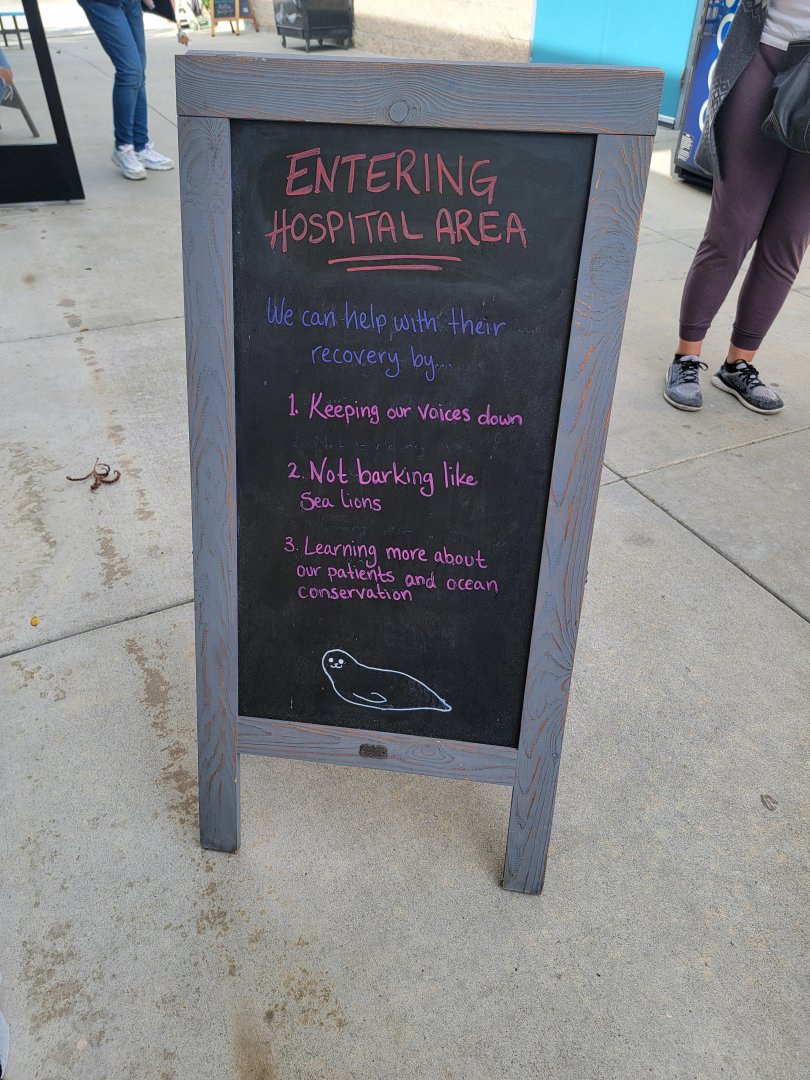 ENTERING
HOSPITAL AREA
We can help with their
recovery by...
1. Keeping our voices down
2. Not barking like
Sea lions
3. Learning more about
our patients and ocean
conservation